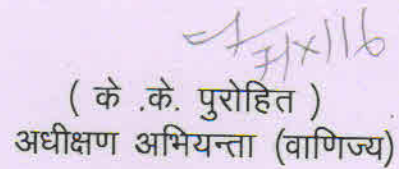 ( के .के. पुरोहित )
अधीक्षण अभियन्ता (वाणिज्य)